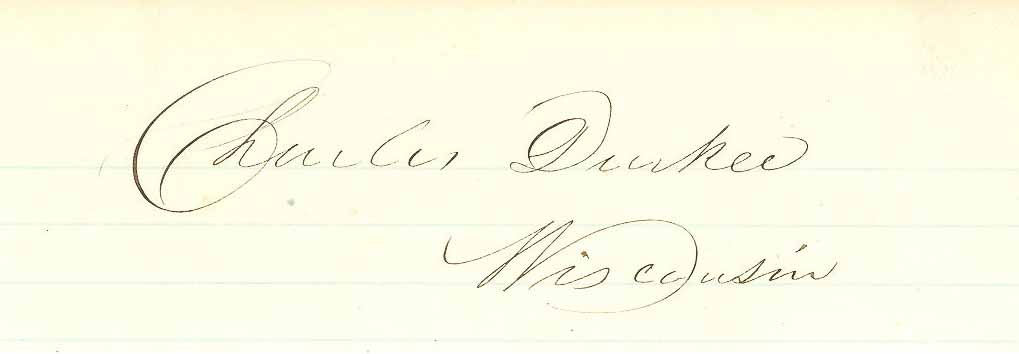 Charles Durkee
Wisconsin